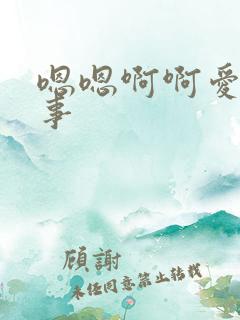 嗯嗯啊啊爱
事
顾謝
未经同意禁止转载